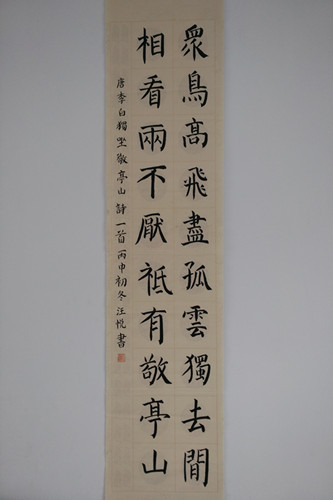 眾鳥髙飛盡孤雲獨去閒
相看兩不厭祗有敬亭山
唐李白獨坐敬亭山詩一首丙申初冬汪悅書